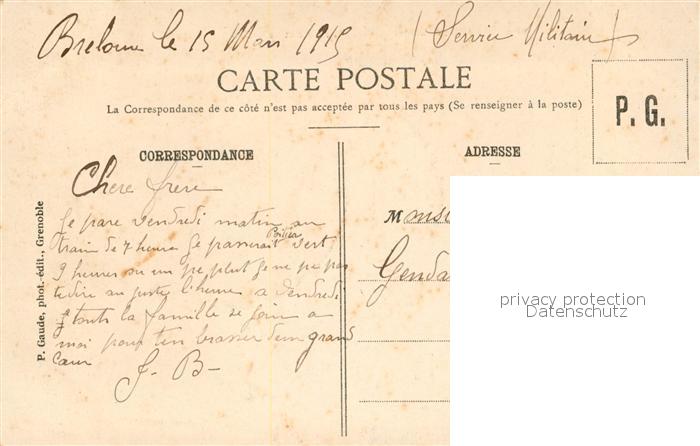 le 15 Mars 1915 (Service Militaire)
CARTE POSTALE
La Correspondance de ce côté n'est pas acceptée par tous les pays (Se renseigner à la poste)
P. G.
CORRESPONDANCE
Chere frere
Je pare vendredi matin au
train de 7 heure Je passerait vert
9 heures ou un pe plut Je ne pe pas
te dire au juste l'heure a Vendredi
toute la famille se join a
moi pour t'en brasser d'un grand
Cœur
J- B-
P. Gaude, phot.-édit., Grenoble
ADRESSE
Monsi
Genda
privacy protection
Datenschutz